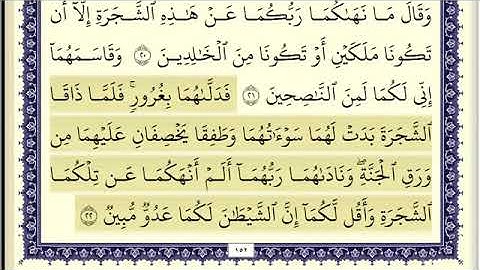 وَقَالَ مَا نَهَىٰكُمَا رَبُّكُمَا عَنْ هَـٰذِهِ ٱلشَّجَرَةِ إِلَّآ أَن
تَكُونَا مَلَكَيْنِ أَوْ تَكُونَا مِنَ ٱلْخَـٰلِدِينَ ٢٠ وَقَاسَمَهُمَآ
إِنِّى لَكُمَا لَمِنَ ٱلنَّـٰصِحِينَ ٢١ فَدَلَّىٰهُمَا بِغُرُورٍۚ فَلَمَّا ذَاقَا
ٱلشَّجَرَةَ بَدَتْ لَهُمَا سَوْءَٰتُهُمَا وَطَفِقَا يَخْصِفَانِ عَلَيْهِمَا مِن
وَرَقِ ٱلْجَنَّةِۖ وَنَادَىٰهُمَا رَبُّهُمَآ أَلَمْ أَنْهَكُمَا عَن تِلْكُمَا
ٱلشَّجَرَةِ وَأَقُل لَّكُمَآ إِنَّ ٱلشَّيْطَـٰنَ لَكُمَا عَدُوٌّ مُّبِينٌ ٢٢
١٥٢